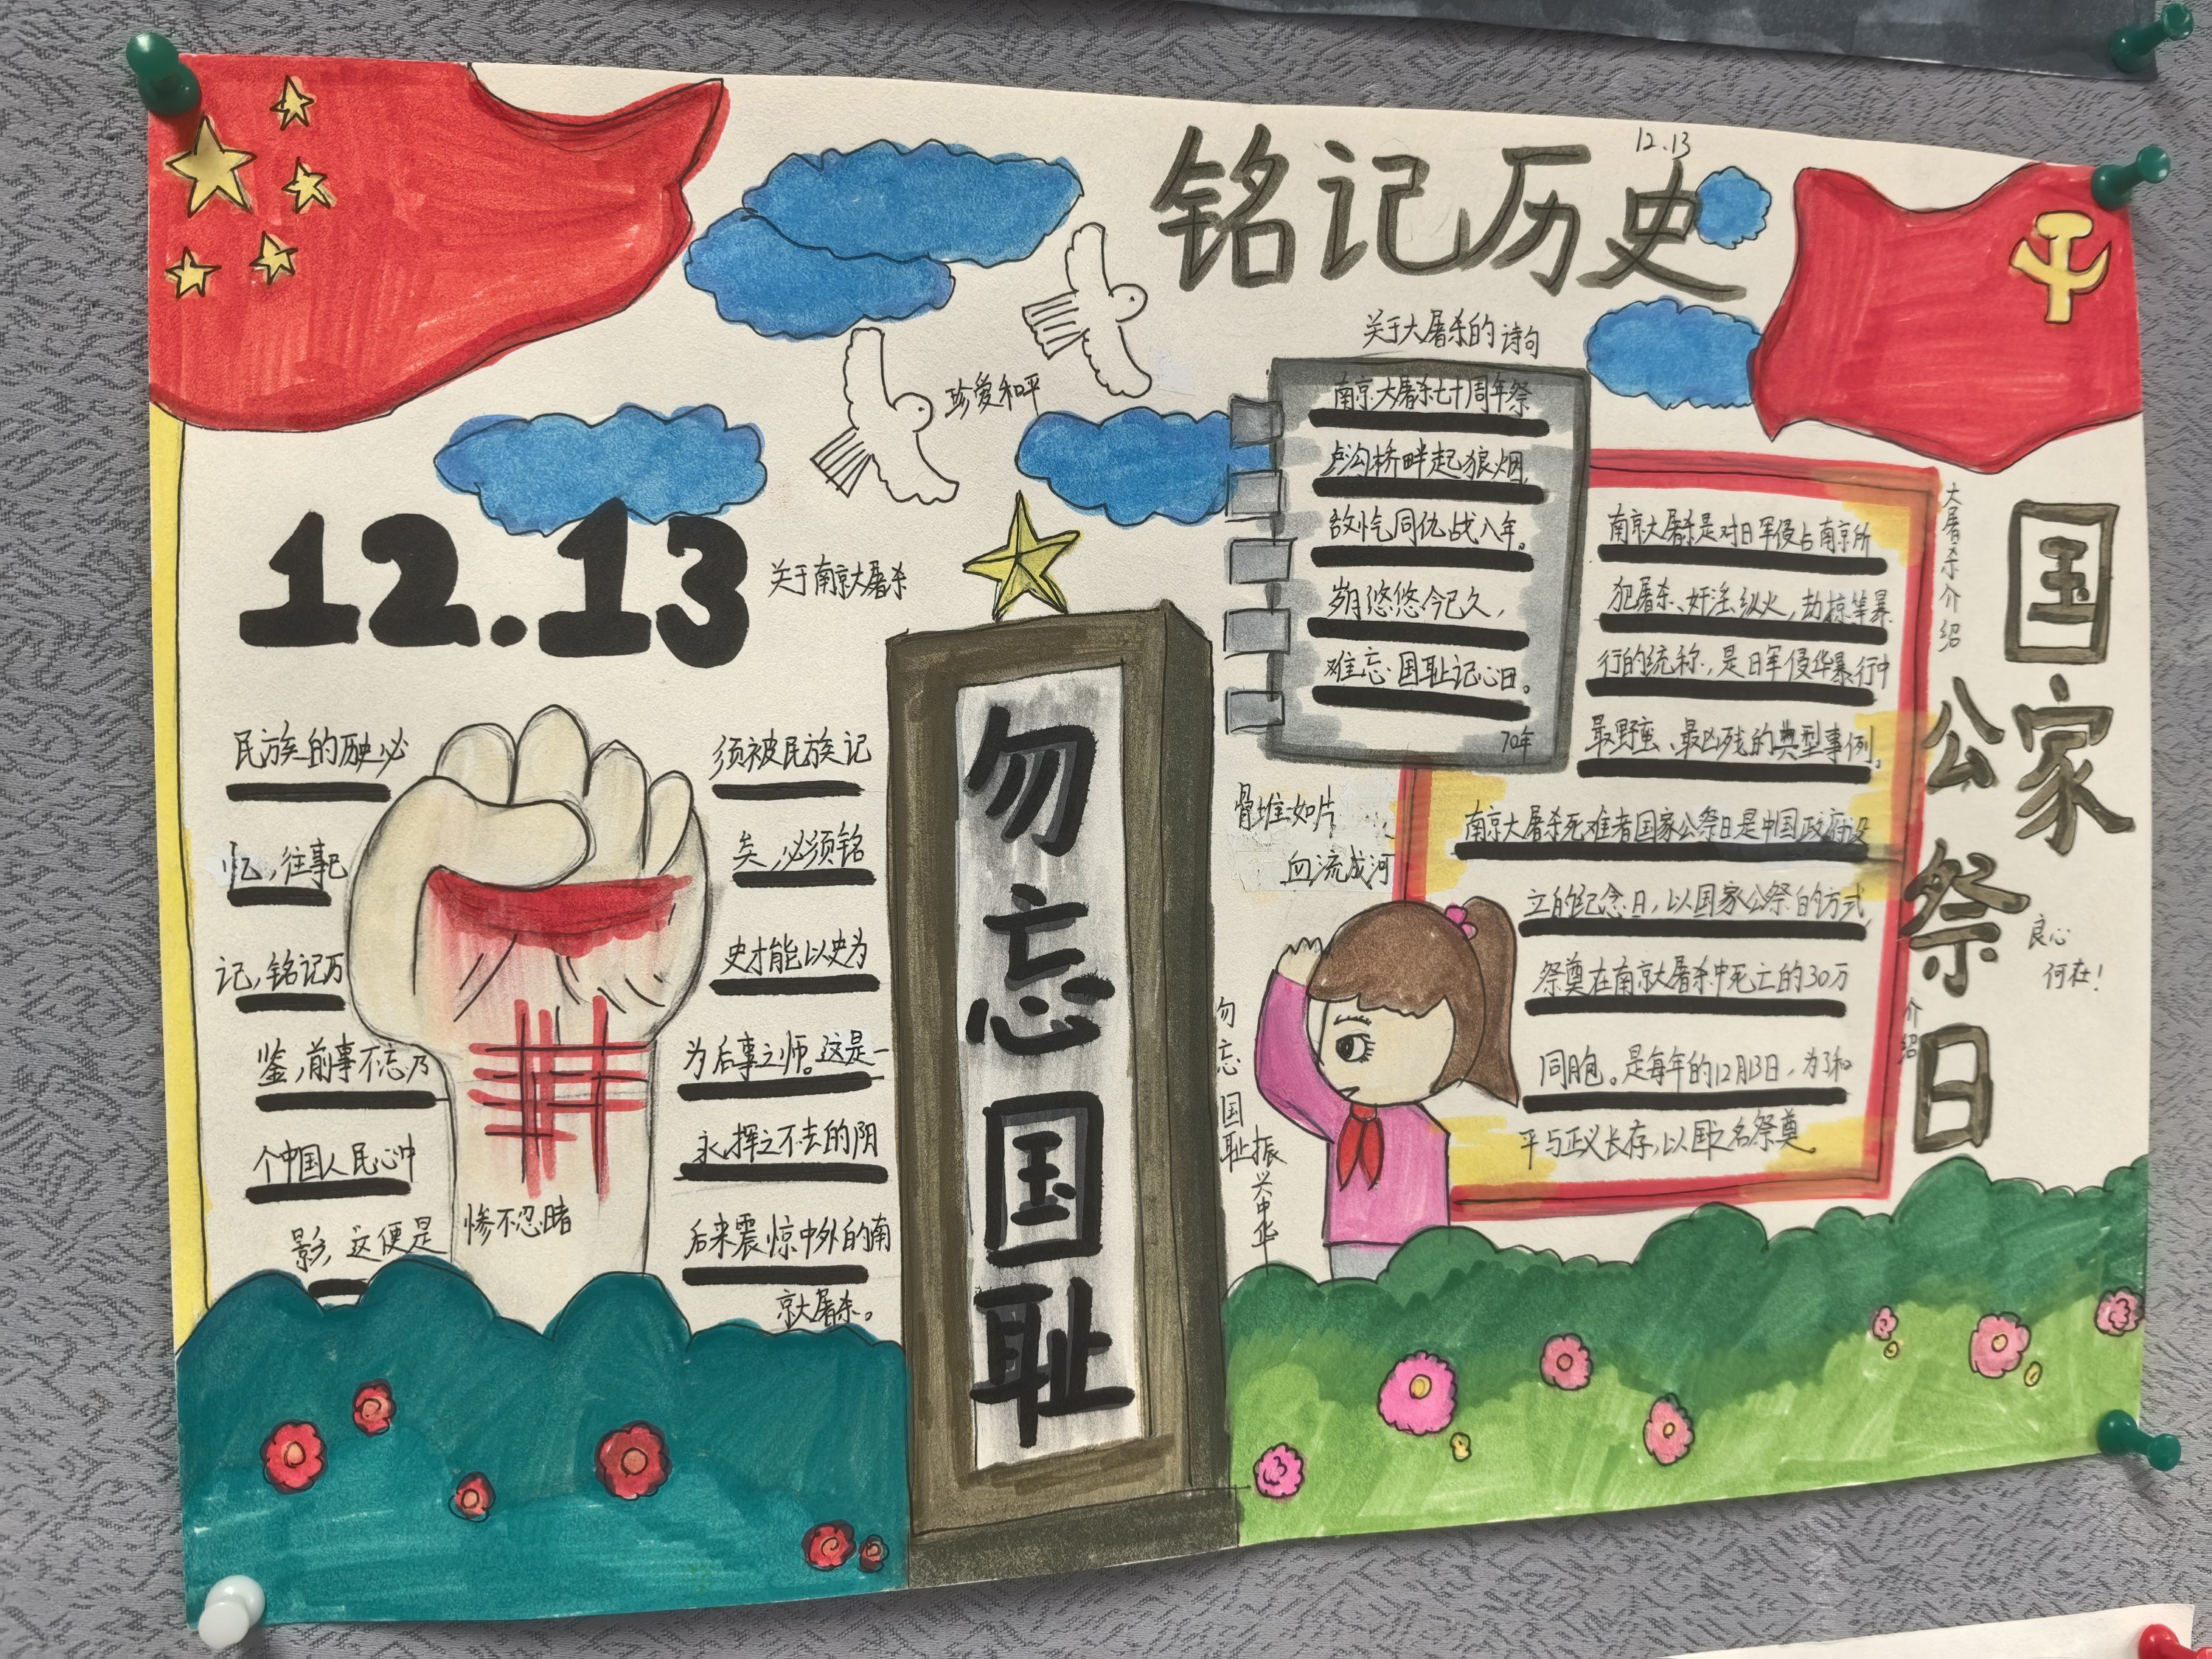 12.13
铭记历史
珍爱和平
12.13
关于南京大屠杀
民族的历史必
须被民族记
忆,往事已
矣,必须铭
记,铭记历
史才能以史为
鉴,前事不忘乃
为后事之师。这是一
个中国人民心中
永挥之不去的阴
影,这便是
后来震惊中外的南
京大屠杀。
惨不忍睹
勿忘国耻
关于大屠杀的诗句
南京大屠杀七十周年祭
卢沟桥畔起狼烟,
敌忾同仇战八年。
岁月悠悠今已久,
难忘国耻记心田。
70年
骨堆如片
血流成河
勿忘国耻振兴中华
大屠杀介绍
南京大屠杀是对日军侵占南京所
犯屠杀、奸淫、纵火,劫掠等暴
行的统称,是日军侵华暴行中
最野蛮、最凶残的典型事例。
南京大屠杀死难者国家公祭日是中国政府设
立的纪念日,以国家公祭日的方式,
祭奠在南京大屠杀中死亡的30万
同胞。是每年的12月13日,为了和
平与正义长存,以国之名祭奠。
国家
公祭日
介绍
良心
何在!